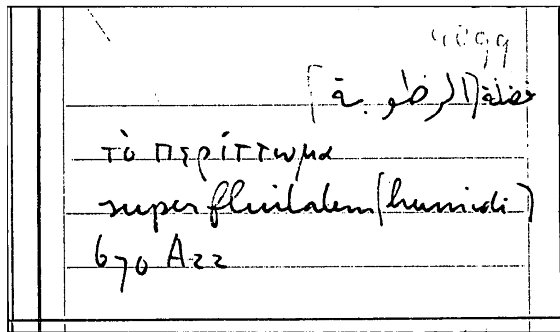 4099
فضلة [الرطوبة]
τὸ περίττωμα
superfluitatem (humidi)
670 A22